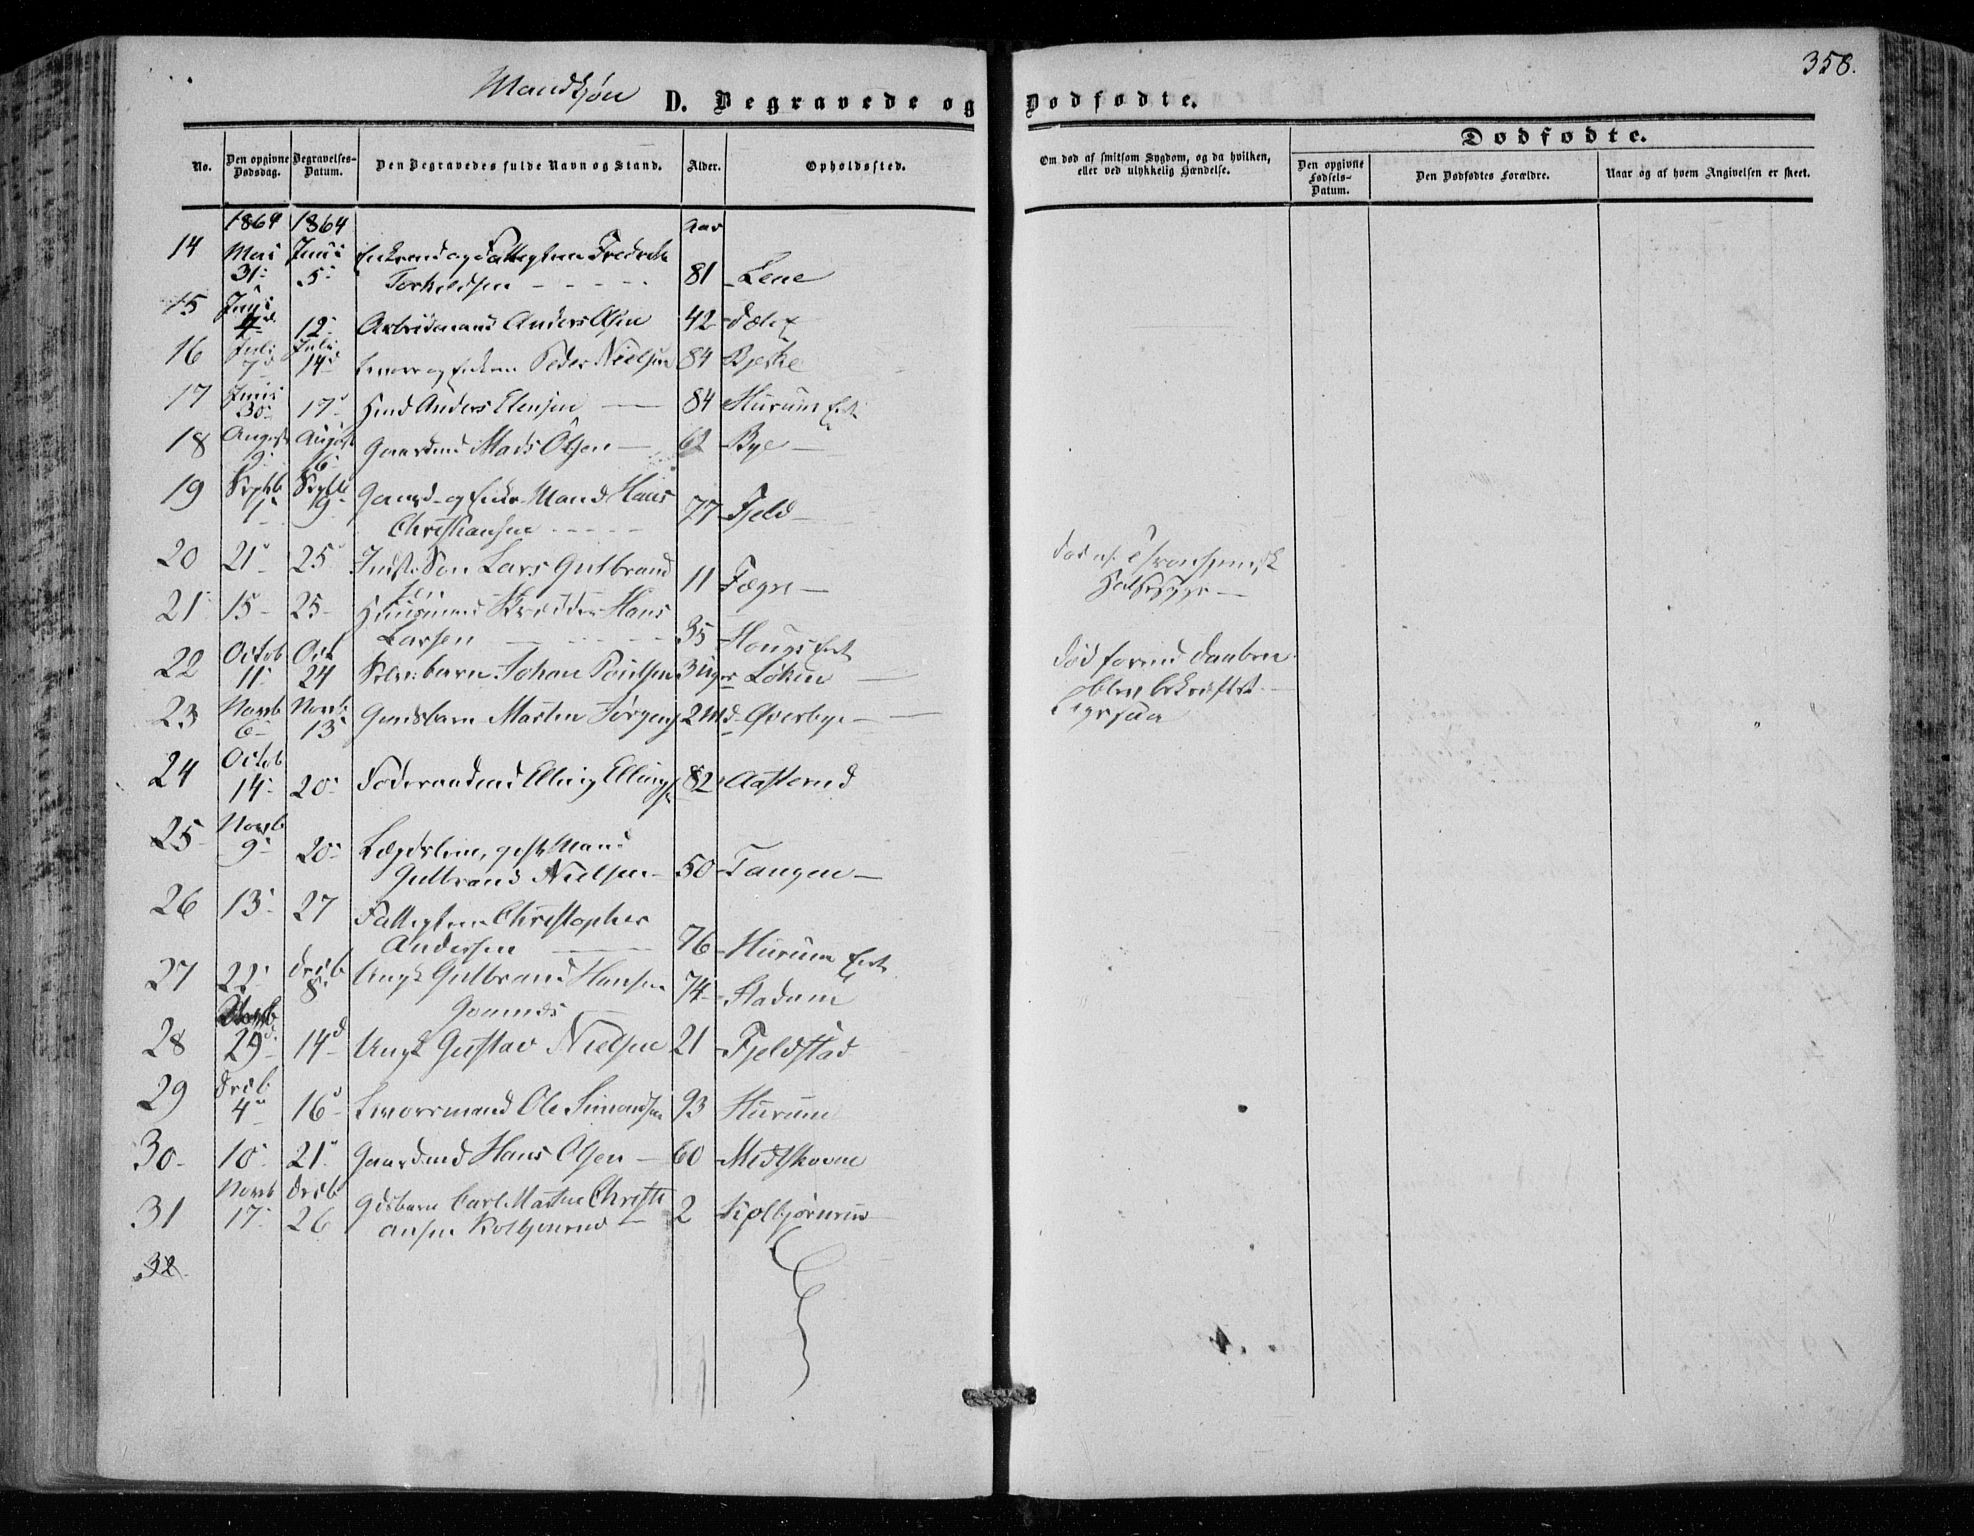 358.
Mandkjøn D. Begravede og Dødfødte.
Dødfødte.
No. Den opgivne Dødsdag. Begravelses-Datum. Den Begravedes fulde Navn og Stand. Alder. Opholdssted. Om død af smitsom Sygdom, og da hvilken, eller ved ulykkelig Hændelse. Den opgivne Fødsels-Datum. Den Dødfødtes Forældre. Naar og af hvem Angivelsen er skeet.
1864 1864 Aar
14 Mai 31 Juni 5 Enkemand og Fattiglem Fredrik
Torkildsen 81 Lene
15 Juni 4 12 Arbeidsmand Anders Olsen 42
16 Juli 7 Juli 14 Peder Nielsen 84 Bjerke
17 Juni 30 17 Anders Elensen 84 Hurum Eie
18 August 9 August 16 Gaardmd Mads Olsen 62 Bye
19 Septb 1 Septb 9 Gaard- og Enke-Mand Hans
Christiansen 77 Fjeld
20 21 25 Inds. Søn Lars Gulbrand
sen 11 Fægre
21 15 25 Huusmand Skrædder Hans
Larsen 35 Hougs Eie
22 Octob 11 Oct 24 barn Johan Poulsen 3 Uger Løken død forind Daaben
blev bekræftet
23 Novb 6 Novb 13 Gaardsbarn Martin Jørgens 2 Md Overbye
24 Octob 14 20 Føderaadmd Elling Ellings 82 Aasterud
25 Novb 9 20 Lægdslem, gift Mand
Gulbrand Nielsen 50 Tangen
26 13 27 Fattiglem Christopher
Andersen 76 Hurum Eie
27 22 Decb 8 Ungk Gulbrand Hansen
74 Hadum
28 Novb 29 14 Ungk Gustav Nielsen 21 Fjeldstad
29 Decb 4 16 Ole Simonsen 93 Hurum
30 10 21 Gaardmd Hans Olsen 60 Midtskoven
31 Novb 17 Decb 26 Gdsbarn Carl Martin Christi
ansen Kolbjønrud 2 Kolbjørnrud
32